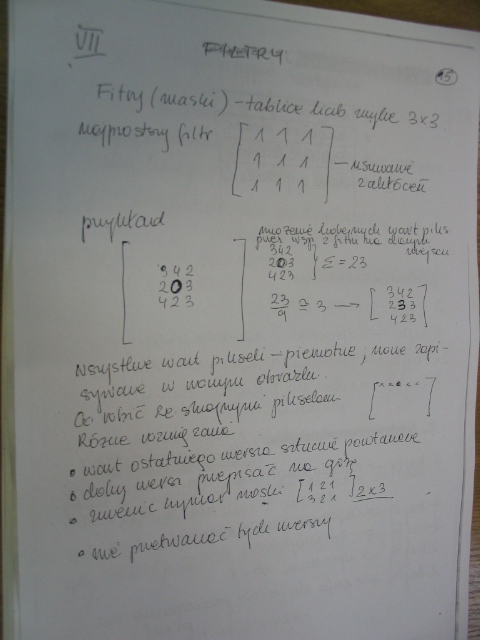 VII
FILTRY
5
Fitry (maski) - tablice liczb zwykle 3x3
najprostszy filtr [ 1 1 1
1 1 1
1 1 1 ] - usuwanie
zakłóceń
przykład
mnożenie kolejnych wart piks
przez wsp z filtru na danym
miejscu
3 4 2
2 0 3
4 2 3
3 4 2
2 0 3
4 2 3
Σ = 23
23/9 ≅ 3 → [ 3 4 2
2 3 3
4 2 3 ]
Wszystkie wart pikseli - pierwotne, nowe zapi-
sywane w nowym obrazku.
Co robić ze skrajnymi pikselami
Różne rozwiązania
• wart ostatniego wiersza sztucznie powtarzane
• dolny wiersz przepisać na górę
• zmienić wymiar maski [ 1 2 1
3 2 1 ] 2x3
• nie przetwarzać tych wierszy